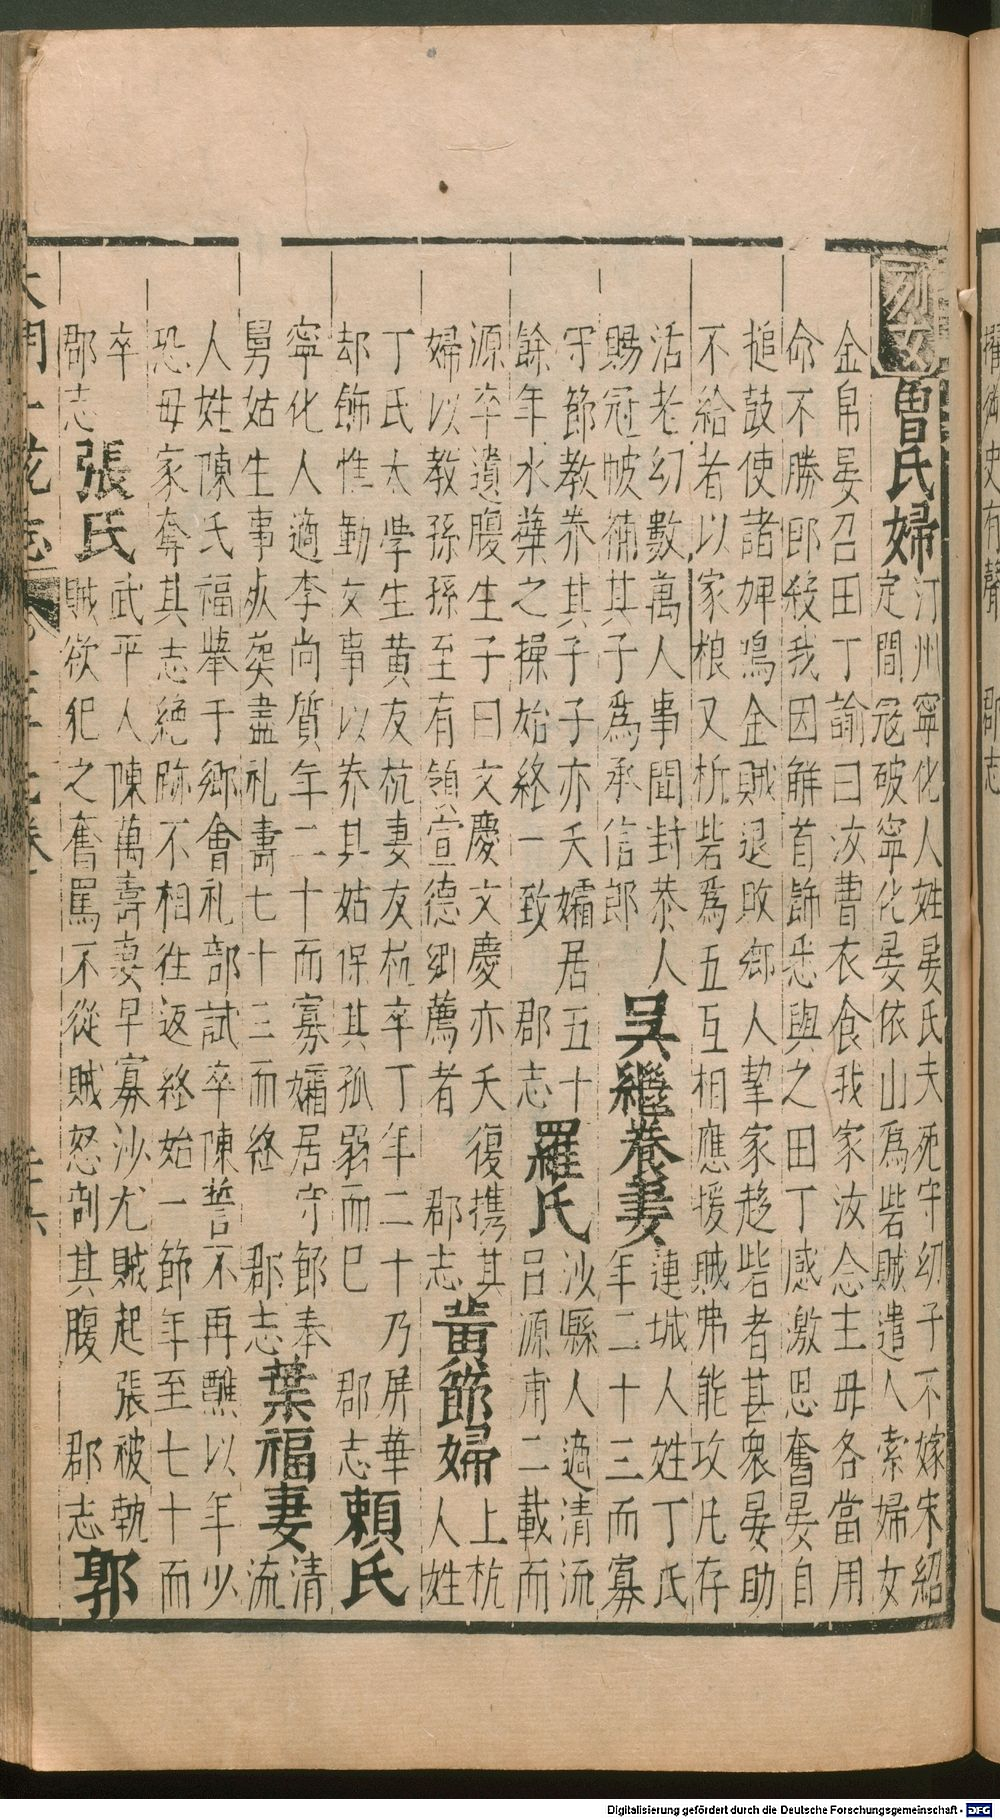 列女
曾氏婦
汀州寧化人姓晏氏夫死守幼子不嫁宋紹
定間冦破寧化晏依山為砦賊遣人索婦女
金帛晏召田丁諭曰汝曹衣食我家汝念主毋各當用
命不勝卽殺我因解首飾悉與之田丁感激思奮晏自
搥鼓使諸婢鳴金賊退敗鄉人挈家趍砦者甚衆晏助
不給者以家粮又析砦為五互相應援賊弗能攻凡存
活老幼數萬人事聞封恭人
賜冠帔補其子為承信郎
吳繼養妻
連城人姓丁氏
年二十三而寡
守節教养其子子亦夭孀居五十
餘年水蘗之操始終一致 郡志
羅氏
沙縣人適清流
呂源甫二載而
源卒遺腹生子曰文慶文慶亦夭復携其
婦以教孫孫至有領宣德鄉薦者 郡志
黃節婦
上杭
人姓
丁氏太學生黃友杭妻友杭卒丁年二十乃屏華
却飾惟勤女事以养其姑保其孤 而已 郡志
賴氏
寧化人適李尚質年二十而寡孀居守節奉
舅姑生事死葬盡礼壽七十三而終 郡志
葉福妻
清
流
人姓陳氏福舉于鄉會礼部試卒陳誓不再醮以年少
恐毋家奪其志絕跡不相往返終始一節年至七十而
卒
郡志
張氏
武平人陳萬壽妻早寡沙尤賊起張被執
賊欲犯之奮罵不從賊怒剖其腹 郡志
郭
Digitalisierung gefördert durch die Deutsche Forschungsgemeinschaft - DFG